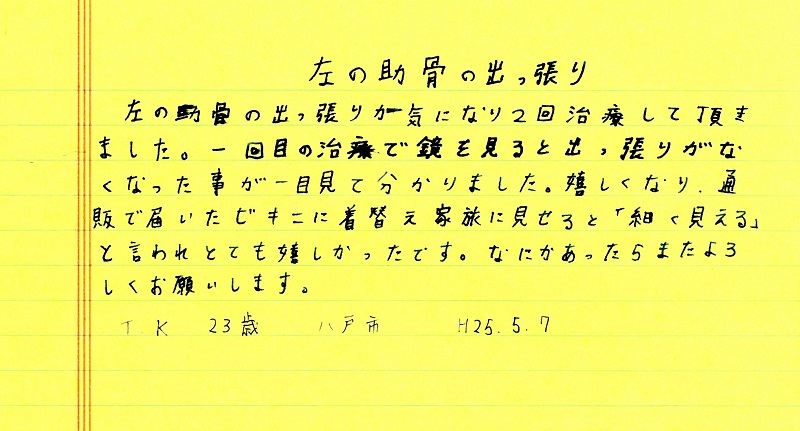 左の助骨の出っ張り
左の助骨の出っ張りが気になり2回治療して頂き
ました。一回目の治療で鏡を見ると出っ張りがな
くなった事が一目見て分かりました。嬉しくなり、通
販で届いたビキニに着替え家族に見せると「細く見える」
と言われとても嬉しかったです。なにかあったらまたよろ
しくお願いします。
T.K 23歳 八戸市 H25.5.7